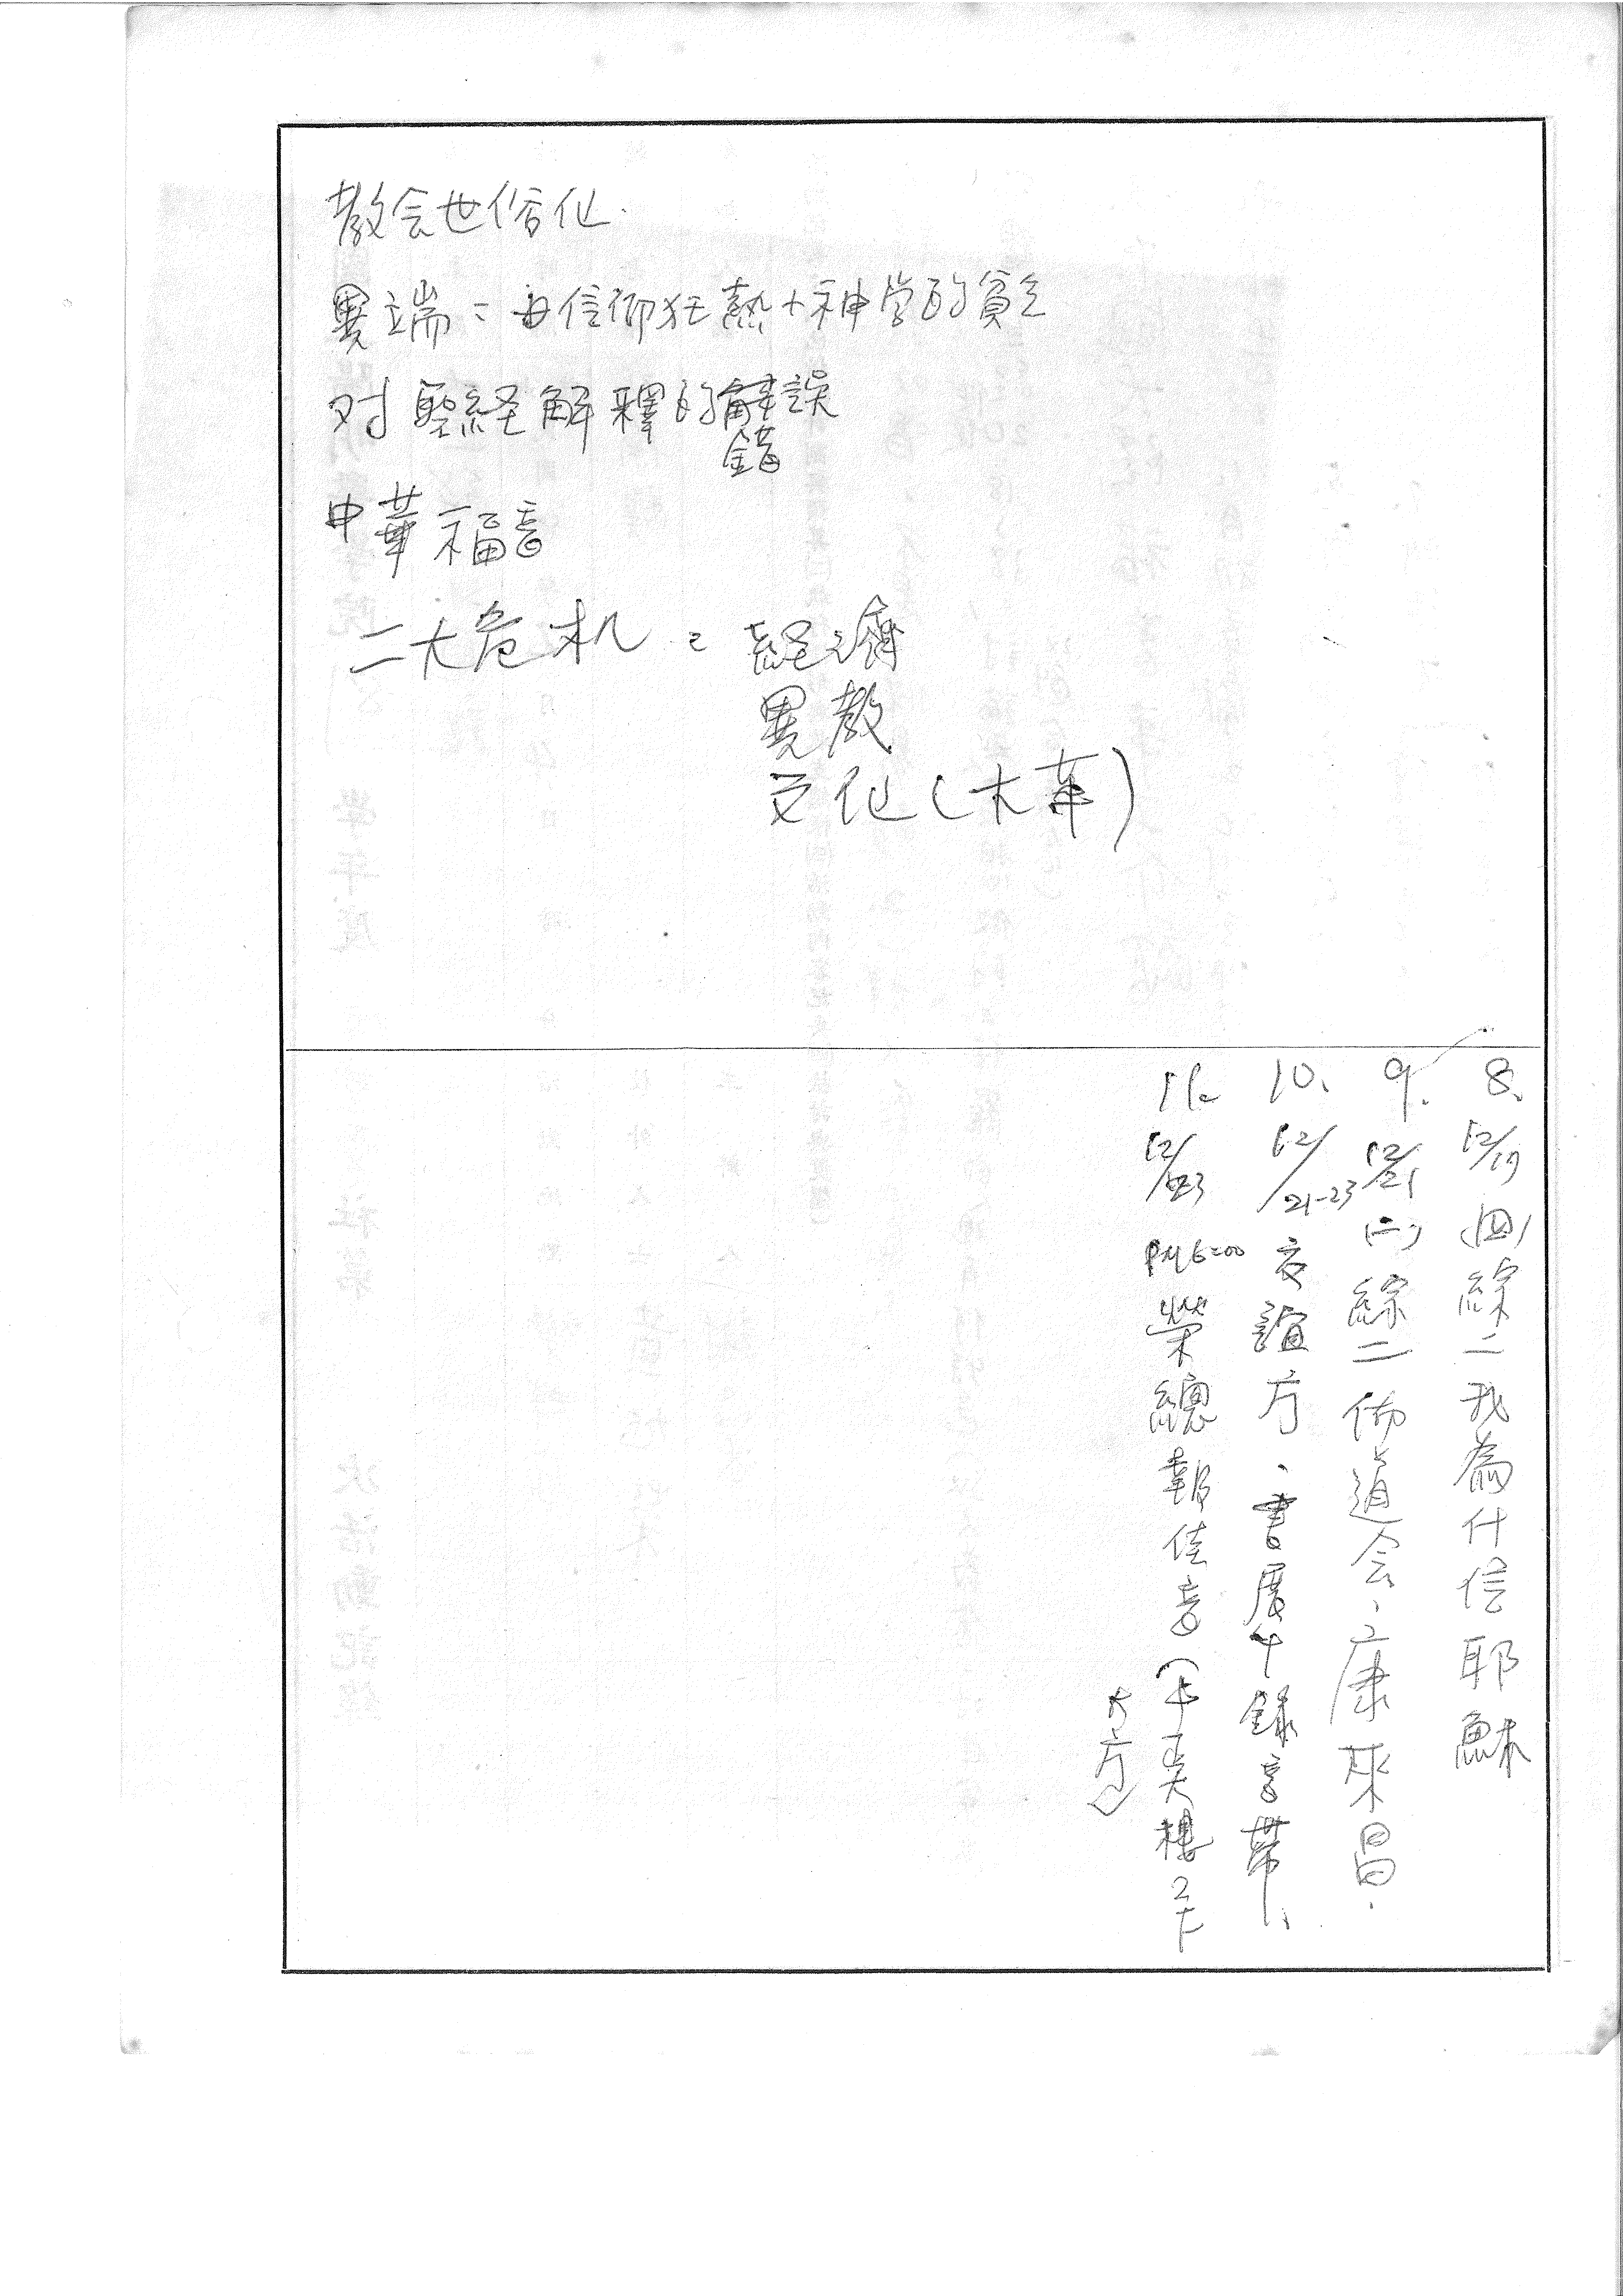 教会世俗化.
異端：由信仰狂熱+神学的貧乏
对聖経解釋的解誤
錯
中華福音
二大危机：経濟
異教
文化(大革)
8. 12/19 (四) 綜二 我為什信耶穌
9. 12/21 (二) 綜二 佈道会、康來昌.
10. 12/21-23 交誼厅、書展十錄音帶、
11. 12/23 PM6:00 榮總報佳音(中正樓2F
大厅)